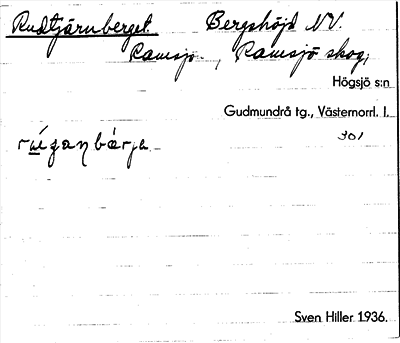 Rudtjärnberget. Bergshöjd NV.
Ramsjö, Ramsjö skog,
Högsjö s:n
Gudmundrå tg., Västernorrl. l.
301
Sven Hiller 1936.